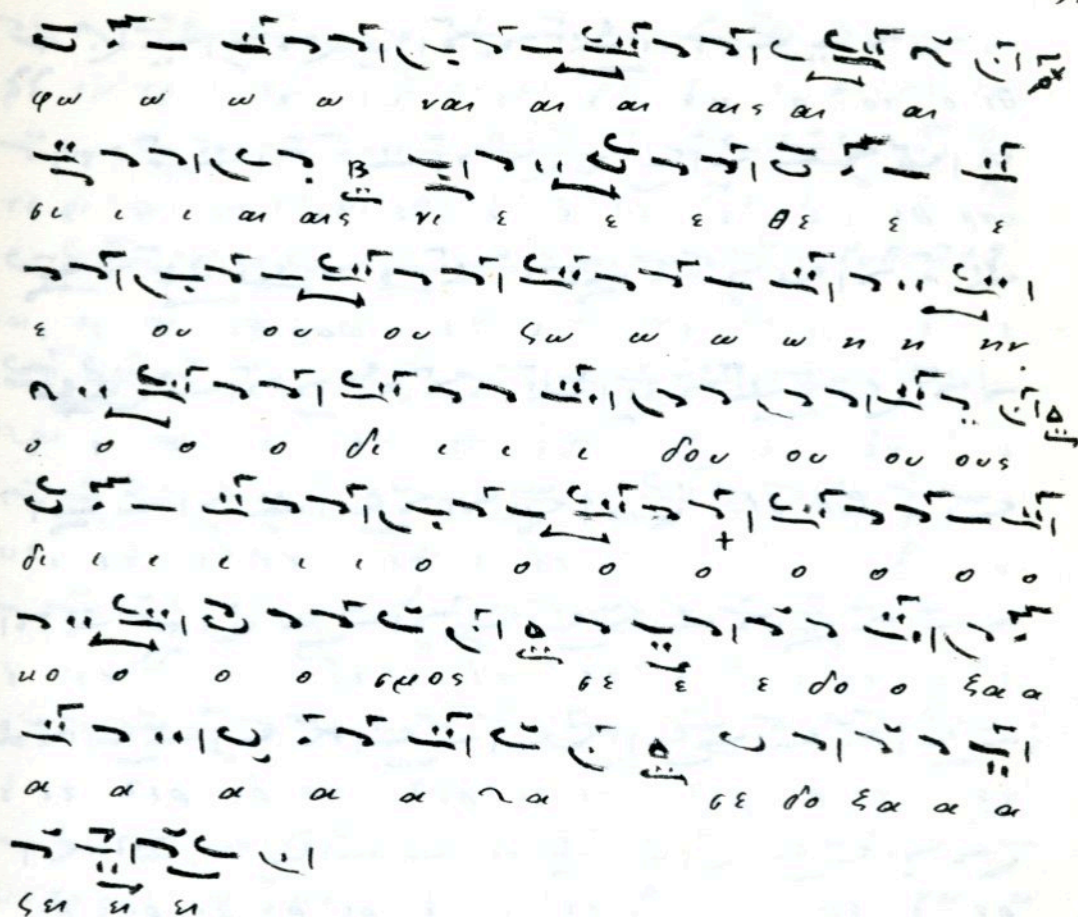 φω ω ω ω ναι αι αι αις αι αι
σι ι ι αι αις υι ε ε ε Θε ε ε
ε ου ου ου ζω ω ω ω η η ην
ο ο ο ο δι ι ι ι δου ου ου ους
δι ι ι ι ι ο ο ο ο ο ο ο ο
κο ο ο ο σμος σε ε ε δο ο ξα α
α α α α α α σε δο ξα α α
ζει ει ει